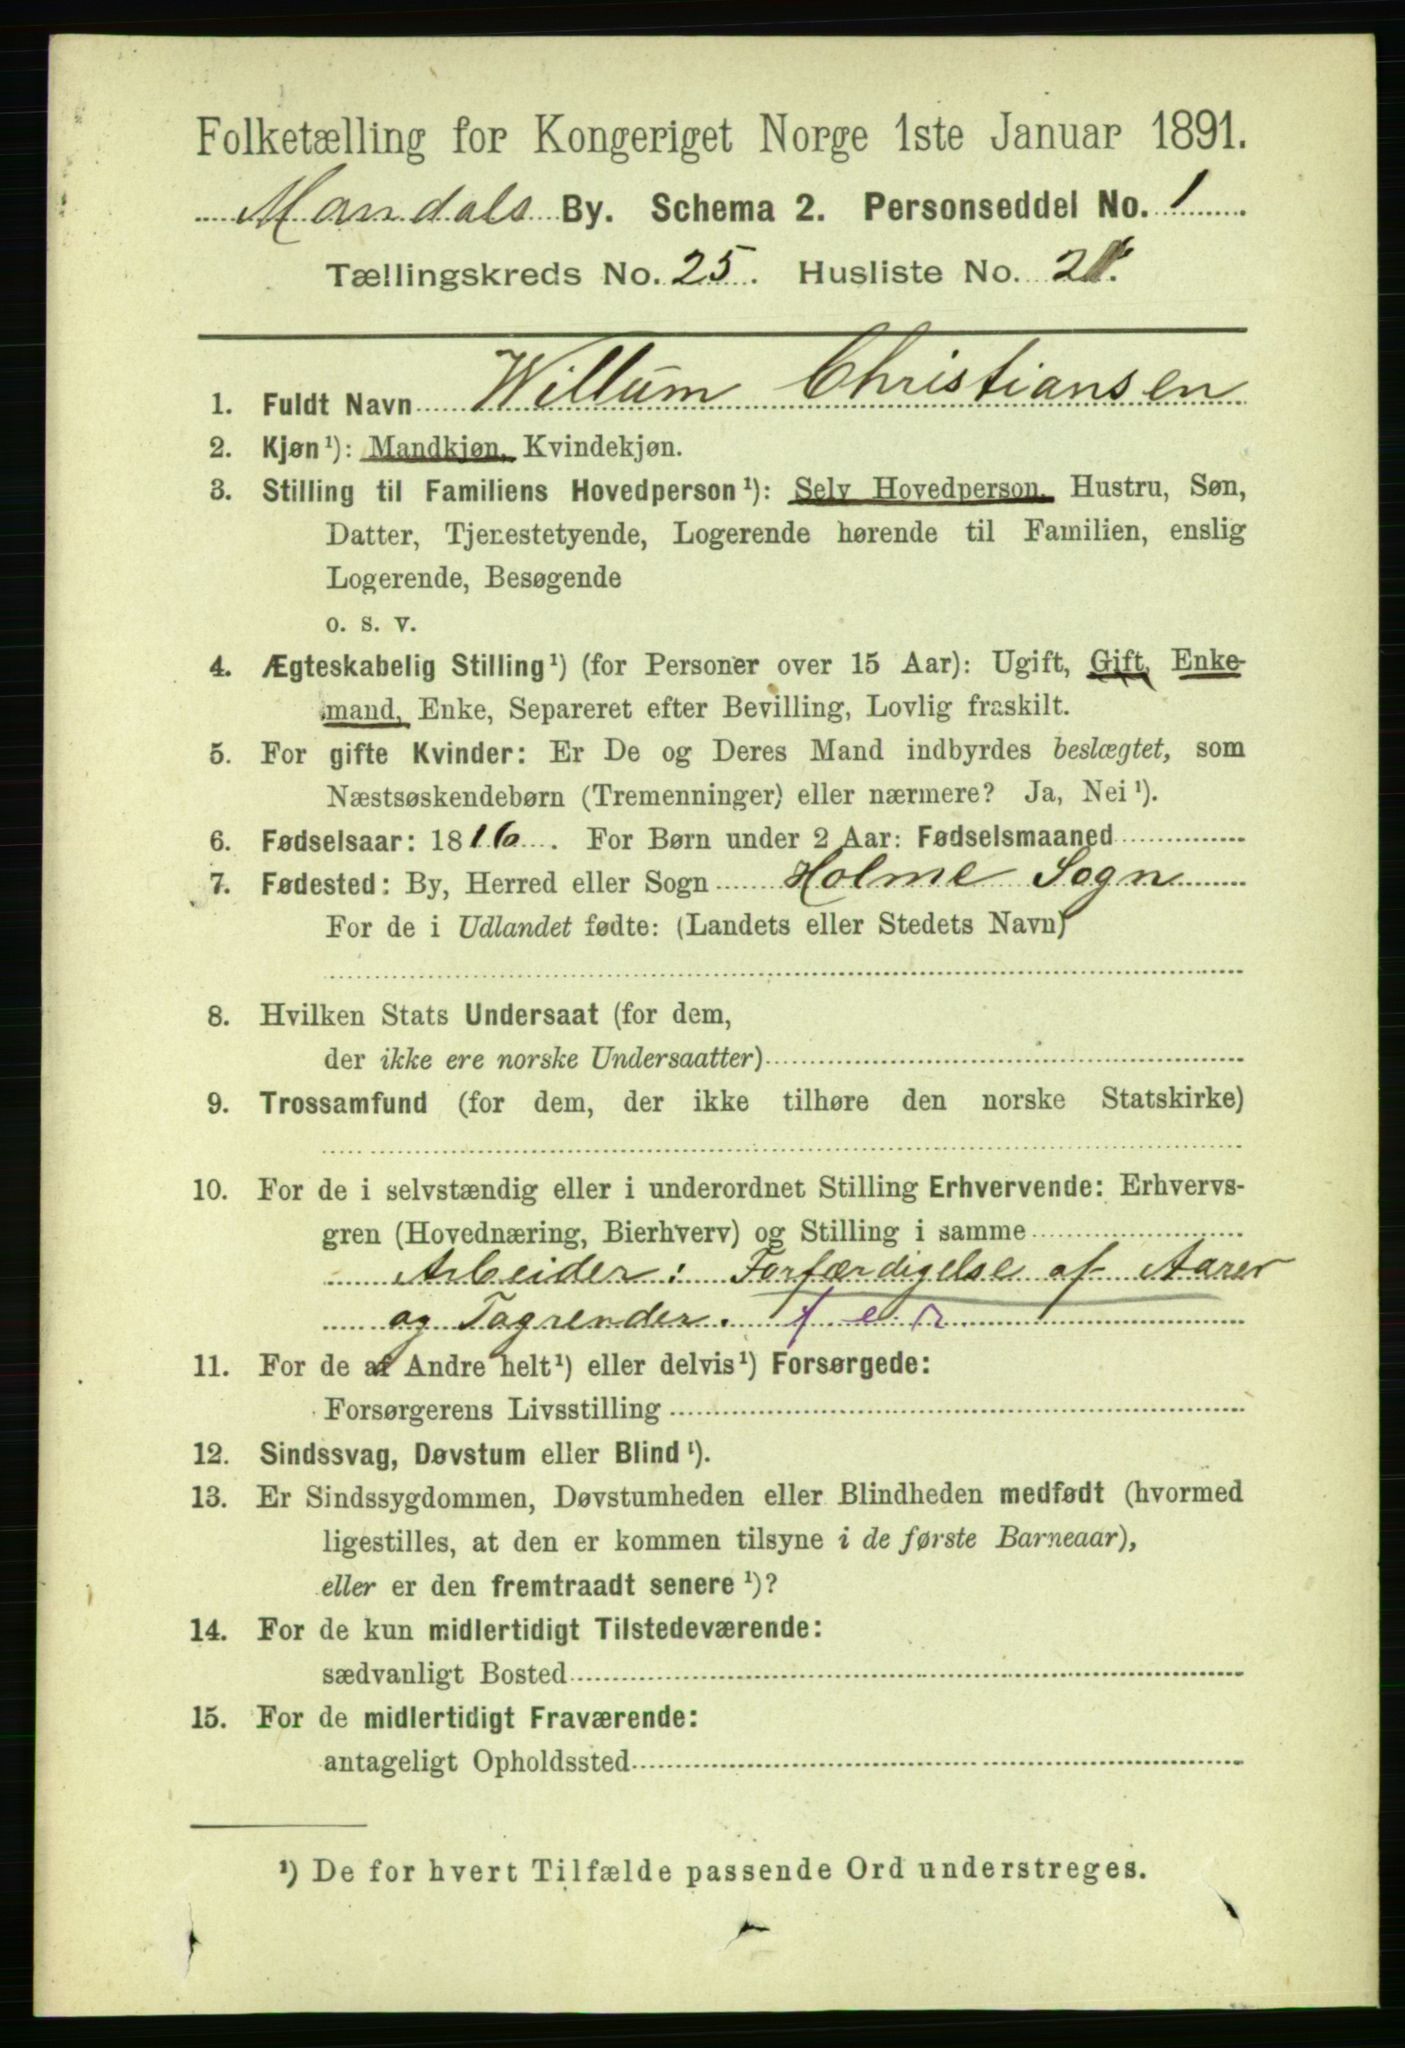 Folketælling for Kongeriget Norge 1ste Januar 1891.
Mandals By. Schema 2. Personseddel No. 1
Tællingskreds No. 25. Husliste No. 2
1. Fuldt Navn Willum Christiansen
2. Kjøn¹): Mandkjøn, Kvindekjøn.
3. Stilling til Familiens Hovedperson¹): Selv Hovedperson, Hustru, Søn,
Datter, Tjenestetyende, Logerende hørende til Familien, enslig
Logerende, Besøgende
o. s. v.
4. Ægteskabelig Stilling¹) (for Personer over 15 Aar): Ugift, Gift, Enke-
mand, Enke, Separeret efter Bevilling, Lovlig fraskilt.
5. For gifte Kvinder: Er De og Deres Mand indbyrdes beslægtet, som
Næstsøskendebørn (Tremenninger) eller nærmere? Ja, Nei¹).
6. Fødselsaar: 1816. For Børn under 2 Aar: Fødselsmaaned
7. Fødested: By, Herred eller Sogn Holme Sogn
For de i Udlandet fødte: (Landets eller Stedets Navn)
8. Hvilken Stats Undersaat (for dem,
der ikke ere norske Undersaatter)
9. Trossamfund (for dem, der ikke tilhøre den norske Statskirke)
10. For de i selvstændig eller i underordnet Stilling Erhvervende: Erhvervs-
gren (Hovednæring, Bierhverv) og Stilling i samme
Arbeider: Forfærdigelse af Aarer
og Tagrender.
11. For de af Andre helt¹) eller delvis¹) Forsørgede:
Forsørgerens Livsstilling
12. Sindssvag, Døvstum eller Blind¹).
13. Er Sindssygdommen, Døvstumheden eller Blindheden medfødt (hvormed
ligestilles, at den er kommen tilsyne i de første Barneaar),
eller er den fremtraadt senere¹)?
14. For de kun midlertidigt Tilstedeværende:
sædvanligt Bosted
15. For de midlertidigt Fraværende:
antageligt Opholdssted
¹) De for hvert Tilfælde passende Ord understreges.